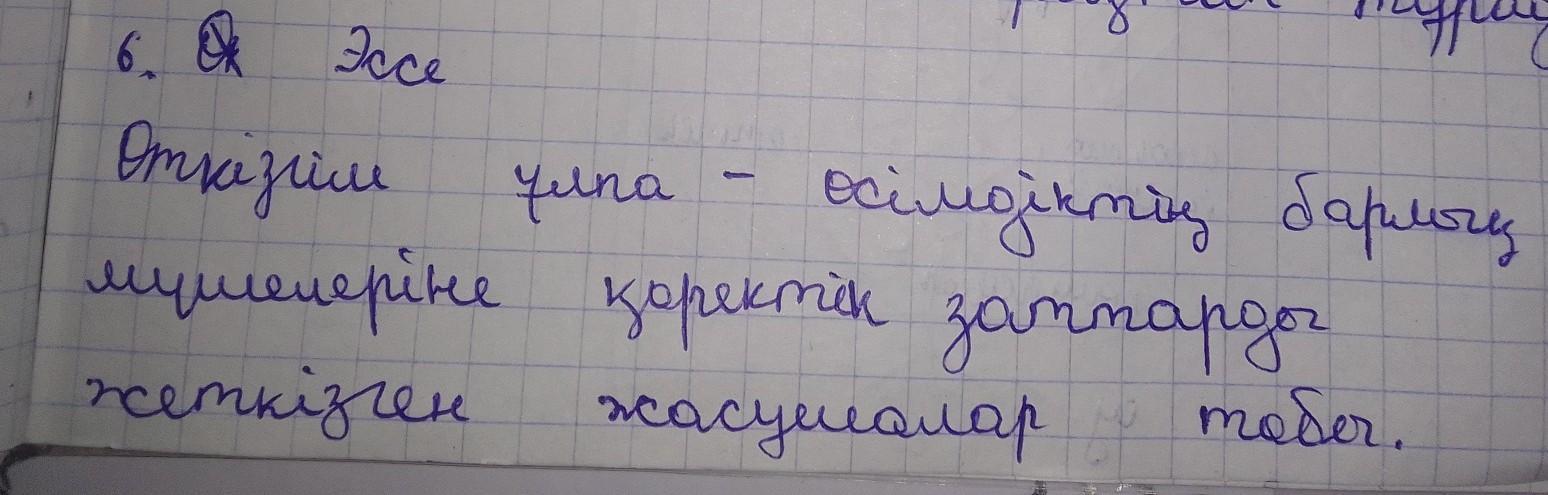 6. Эссе
Өткізгіш ұлпа - өсімдіктің барлық
мүшелеріне қоректік заттарды
жеткізген жасушалар тобы.